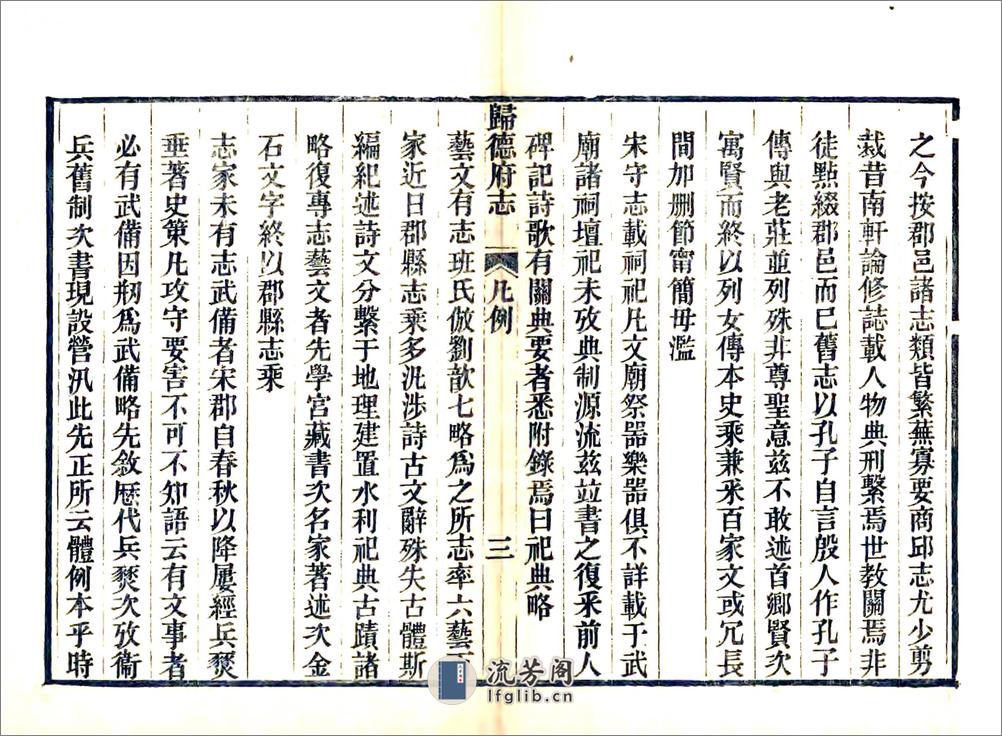 之今按郡邑諸志類皆繁蕪寡要商邱志尤少剪
裁昔南軒論修誌載人物典刑繫焉世教關焉非
徒㸃綴郡邑而已舊志以孔子自言殷人作孔子
傳與老莊並列殊非尊聖意茲不敢述首鄉賢次
寓賢而終以列女傳本史乘兼采百家文或冗長
間加删節甯簡毋濫
宋守志載祠祀凡文廟祭器樂器俱不詳載于武
廟諸祠壇祀未攷典制源流茲竝書之復采前人
碑記詩歌有關典要者悉附錄焉曰祀典略
歸德府志
凡例
三
藝文有志班氏倣劉歆七略爲之所志率六藝百
家近日郡縣志乘多汎涉詩古文辭殊失古體斯
編紀述詩文分繫于地理建置水利祀典古蹟諸
略復專志藝文者先學宮藏書次名家著述次金
石文字終以郡縣志乘
志家未有志武備者宋郡自春秋以降屢經兵燹
垂著史策凡攻守要害不可不知語云有文事者
必有武備因剏爲武備略先敘歷代兵燹次攷衞
兵舊制次書現設營汛此先正所云體例本乎時
流芳阁
lfglib.cn